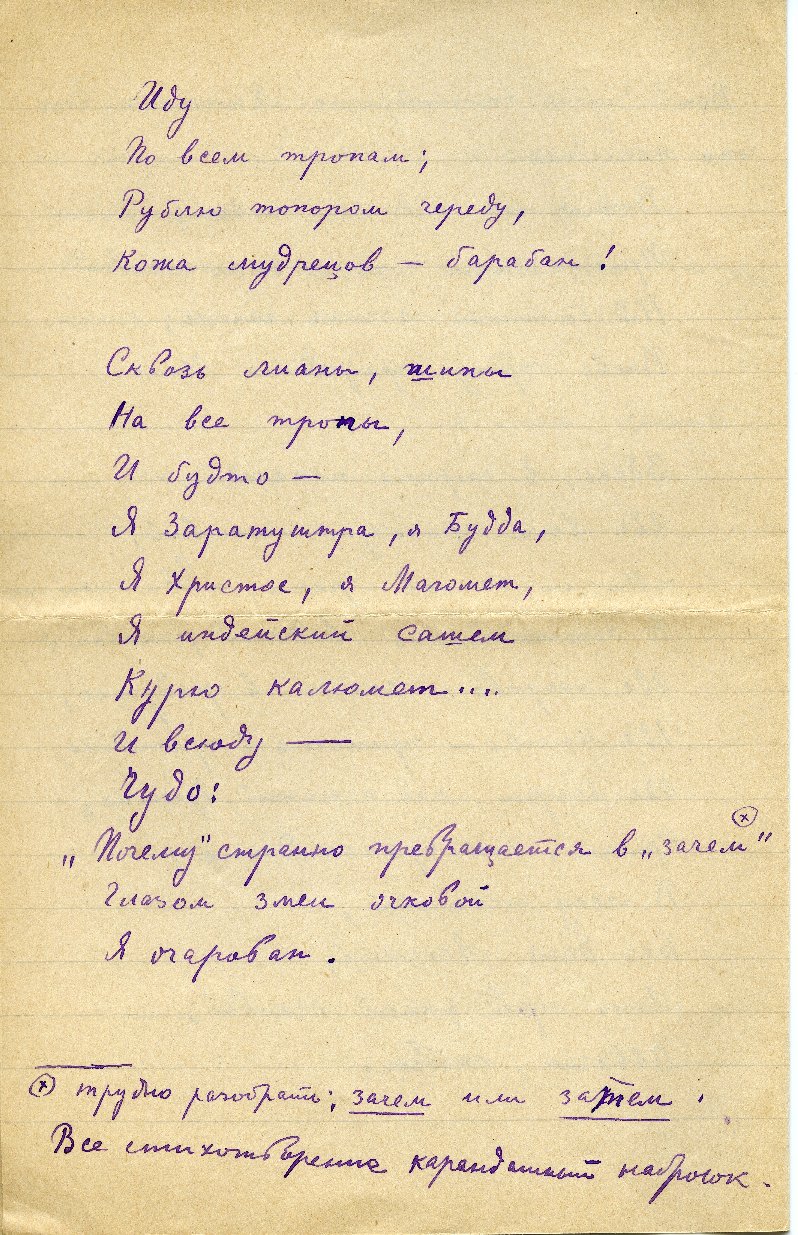 Иду
По всем тропам;
Рублю топором череду,
Кожа мудрецов — барабан!
Сквозь лианы, шипы
На все тропы,
И будто —
Я Заратуштра, я Будда,
Я Христос, я Магомет,
Я индейский сашем
Курю калюмет....
И всюду —
Чудо:
„Почему" странно превращается в „зачем ⓧ"
Глазом змеи очковой
Я очарован.
ⓧ трудно разобрать; зачем или затем.
Все стихотворение карандашный набросок.